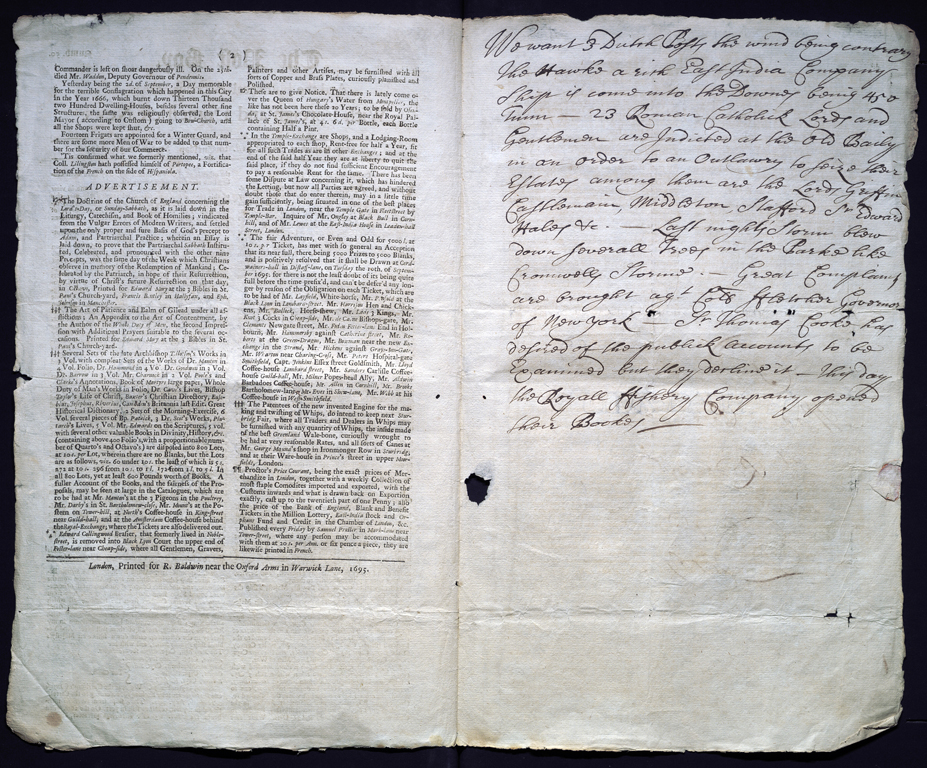 2
Commander is left on shoar dangerously ill. On the 25th.
died Mr. Waddon, Deputy Governour of Pendennis.
Yesterday being the 2d. of September, a Day memorable
for the terrible Conflagration which happened in this City
In the Year 1666, which burnt down Thirteen Thousand
two Hundred Dwelling-Houses, besides several other fine
Structure, the same was religiously observed, the Lord
Mayor (according to Custom) going to Bow-Church, and
all the Shops were kept shut, &c.
Fourteen Frigats are appointed for a Winter Guard, and
there are some more Men of War to be added to that num-
ber for the security of our Commerce.
'Tis confirmed what we formerly mentioned, viz. that
Coll. Lillington hath possessed himself of Portopé, a Fortifica-
tion of the French on the side of Hispaniola.
ADVERTISEMENT.
The Doctrine of the Church of England concerning the
Lord's-Day, or Sunday-Sabbath, as it is laid down in the
Liturgy, Catechism, and Book of Homilies; vindicated
from the Vulgar Errors of Modern Writers, and settled
upon the only proper and sure Basis of God's precept to
Adam, and Patriarchal Practice; wherein an Essay is
laid down, to prove that the Patriarchal Sabbath Institu-
ted, Celebrated, and pronounced with the other nine
Precepts, was the same day of the Week which Christians
observe in memory of the Redemption of Mankind; Ce-
lebrated by the Patriarch, in hope of their Resurrection,
by virtue of Christ's future Resurrection on that day,
in Printed for Edward Mory at the 3 Bibles in St.
Paul's Church-yard, Francis Bentley in Hallifax, and Eph.
in Manchester.
The Art of Patience and Balm of Gilead under all af-
flictions; An Appendix to the Art of Contentment, by
the Author of the Whole Duty of Man, the second Impres-
sion with Additional Prayers suitable to the several oc-
casions. Printed for Edward Mory at the 3 Bibles in St.
Paul's Church-yard.
Several Sets of the late Archbishop Tillotson's Works in
Vol. with compleat Sets of the Works of Dr. Manton in
4 Vol. Folio, Dr. Hammond in 4 Vo. Dr. Goodwin in 3 Vol.
Dr. Barrow in 3 Vol. Mr. Charnock in 2 Vol. Poole's and
Clark's Annotations, Book of Martyrs large paper, Whole
Duty of Man's Works in Folio, Dr. Cave's Lives, Bishop
Taylor's Life of Christ, Baxter's Christian Directory,
Cambden's Britannia last Edit. Great
Historical Dictionary, Sets of the Morning-Exercise, 6
Vol. several pieces of Bp. Dr. Scot's Works,
Lives, 5 Vol. Mr. Edwards on the Scriptures, 3 vol.
with several other valuable Books in Divinity, History, &c.
(containing above 400 Folio's, with a proportionable num-
ber of Quarto's and Octavo's) are disposed into 800 Lots,
at 10s. per Lot, wherein there are no Blanks, but the Lots
are as follows, viz. 60 under 10s. the least of which is 5s.
272 at 10s. 296 from 10s. to 1l. 172 from 1l. to 5l. In
all 800 Lots, yet at least 600 Pounds worth of Books. A
fuller Account of the Books, and the fairness of the Pro-
posals, may be seen at large in the Catalogues, which are
to be had at Mr. Manson's at the 3 Pigeons in the Poultrey,
Mr. Darby's in St. Bartholomew-close, Mr. Munn's at the Po-
stern on Tower-hill, at North's Coffee-house in King-street
near Guild-hall; and at the Amsterdam Coffee-house behind
the Royal-Exchange, where the Tickets are also delivered out.
Edward Collingwood Brasier, that formerly lived in Noble-
street, is removed into Black Lyon Court the upper end of
Foster-lane near Cheap-side, where all Gentlemen, Gravers,
Painters and other Artists, may be furnished with all
sorts of Copper and Brass Plates, curiously planished and
Polished.
These are to give Notice, That there is lately come o-
ver the Queen of Hungary's Water from Montpelier, the
like has not been here these 20 Years; to be sold by
at St. James's Chocolate-House, near the Royal Pal-
lace of St. James's, at 4s. 6d. per Bottle, each Bottle
containing Half a Pint.
In the Temple-Exchange are Shops, and a Lodging-Room
appropriated to each shop, Rent-free for half a Year, fit
for all such Trades as are in other Exchanges; and at the
end of the said half Year they are at liberty to quit the
said place, if they do not find sufficient Encouragement
to pay a reasonable Rent for the same. There has been
some Dispute at Law concerning it, which has hindered
the Letting, but now all Parties are agreed, and without
doubt those that do enter therein, may in a little time
gain sufficiently, being situated in one of the best places
for Trade in London, near the Temple Gate in Fleetstreet by
Temple-Bar. Inquire of Mr. Ongley at Black Bull in Corn-
hill, and of Mr. Lewes at the East-India House in Leaden-hall
Street, London.
The fair Adventure, or Even and Odd for 5000 l. at
20s. per Ticket, has met with so general an Acception
that its near full, there being 5000 Prizes to 5000 Blanks,
and is positively resolved that it shall be Drawn at Cord-
wainers-hall in Distaff-lane, on Tuesday the 10th. of Septem-
ber 1695. for there is not the least doubt of its being quite
full before the time prefix'd, and can't be defer'd any lon-
ger by reason of the Obligation on each Ticket, which are
to be had of Mr. Layfield, White-horse, Mr. P. Weld at the
Black Lyon in Lombard-street, Mr. Harris in Hen and Chick-
ens, Mr. Bullock, Horse-shew, Mr. Lacy 3 Kings, Mr.
Bur 3 Cocks in Cheap-side, Mr. de Caen Bishops-gate, Mr.
Clements Newgate street, Mr. End in Hol-
bourn, Mr. Hammersley against Catherine street, Mr. Ro-
berts at the Green-Dragon, Mr. Bowman near the new Ex-
change in the Strand, Mr. Hickens against Grays-Inn-Gate,
Mr. Wharton near Charing-Cross, Mr. Peters Hospital-gate
Smithfield, Capt. Jenkins Essex street Goldsmith, Mr. Lloyd
Coffee-house Lombard street, Mr. Sanders Carlisle Coffee-
house Guild-hall, Mr. Milner Popes-head Ally, Mr. Aldwin
Barbadoes Coffee-house, Mr. Allen in Cornhill, Mr. Brooks
Bartholomew-lane, Mr. Dyer in Shew-lane, Mr. Wild at his
Coffee-house in West-Smithfield.
The Patentees of the new invented Engine for the ma-
king and twisting of Whips, do intend to keep next Stur-
bridg Fair, where all Traders and Dealers in Whips may
be furnished with any quantity of Whips, the inside made
of the best Greenland Wale-bone, curiously wrought to
be had at very reasonable Rates, and all sorts of Canes at
Mr. George Mason's shop in Ironmonger Row in Sturbridg,
and at their Ware-house in Prince's street in upper Moor-
fields, London.
Proctor's Price Courant, being the exact prices of Mer-
chandize in London, together with a weekly Collection of
most staple Comodites imported and exported, with the
Customs inwards and what is drawn back on Exportion
exactly, cast up to the twentieth part of one Penny; also
the price of the Bank of England, Blank and Benefit
Tickets in the Million Lottery, East-India Stock and Or-
phans Fund and Credit in the Chamber of London, &c.
Published every Friday by Samuel Proctor in Mark-lane near
Tower-street, where any person may be accommodated
with them at 20s. per Ann. or six pence a piece, they are
likewise printed in French.
London, Printed for R. Baldwin near the Oxford Arms in Warwick Lane, 1695.
We want 3 Dutch Posts the wind being contrary
The Hawke a rich East India Company
Ship is come into the Downes being 450
Tunn — 23 Roman Catholick Lords and
Gentlemen are Indicted at the Old Baily
in an order to an Outlawry to seize their
Estates among them are the Lords Griffin
Castlemain Middleton Stafford Sr Edward
Hales &c — Last nights Storm blew
down severall Trees in the Parke like
Cromwells Storme — Great Complaints
are brought agt Coll Fletcher Governor
of New York — Sr Thomas Cooke has
desired of the publick Accounts to be
Examined but they decline it — this day
the Royall Fishery Company opened
their Bookes —